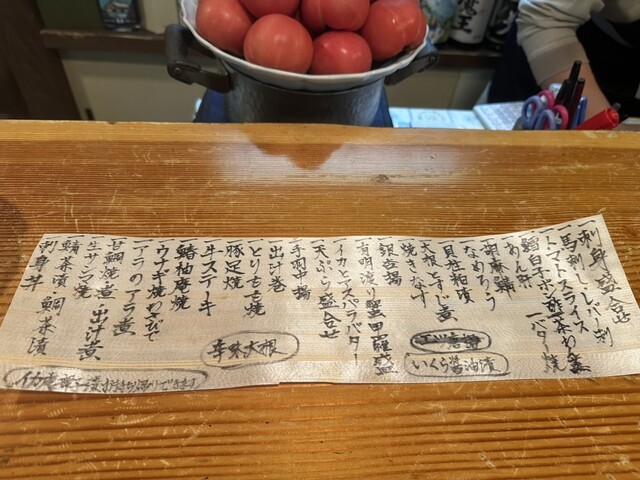 一刺身盛合せ
一馬刺し レバー刺
一トマトスライス 茶わん蒸
一鱈白子ポン酢 バター焼
一あん肝
一胡麻鯵
一なめろう
一貝柱粕漬
一大根とすじ煮
一焼きなす
一銀杏揚
一有明渡り蟹甲羅盛
一イカとアスパラバター
一天ぷら盛合せ
一手羽揚
一出汁巻
一とりもも焼
一豚足焼
一牛ステーキ
一鰆柚庵焼
一ウナギ焼わさび
一アラのアラ煮
一甘鯛焼 煮 出汁煮
一生サンマ焼
一鯖茶漬 鯛茶漬
刺身
いくら醤油漬
辛味大根